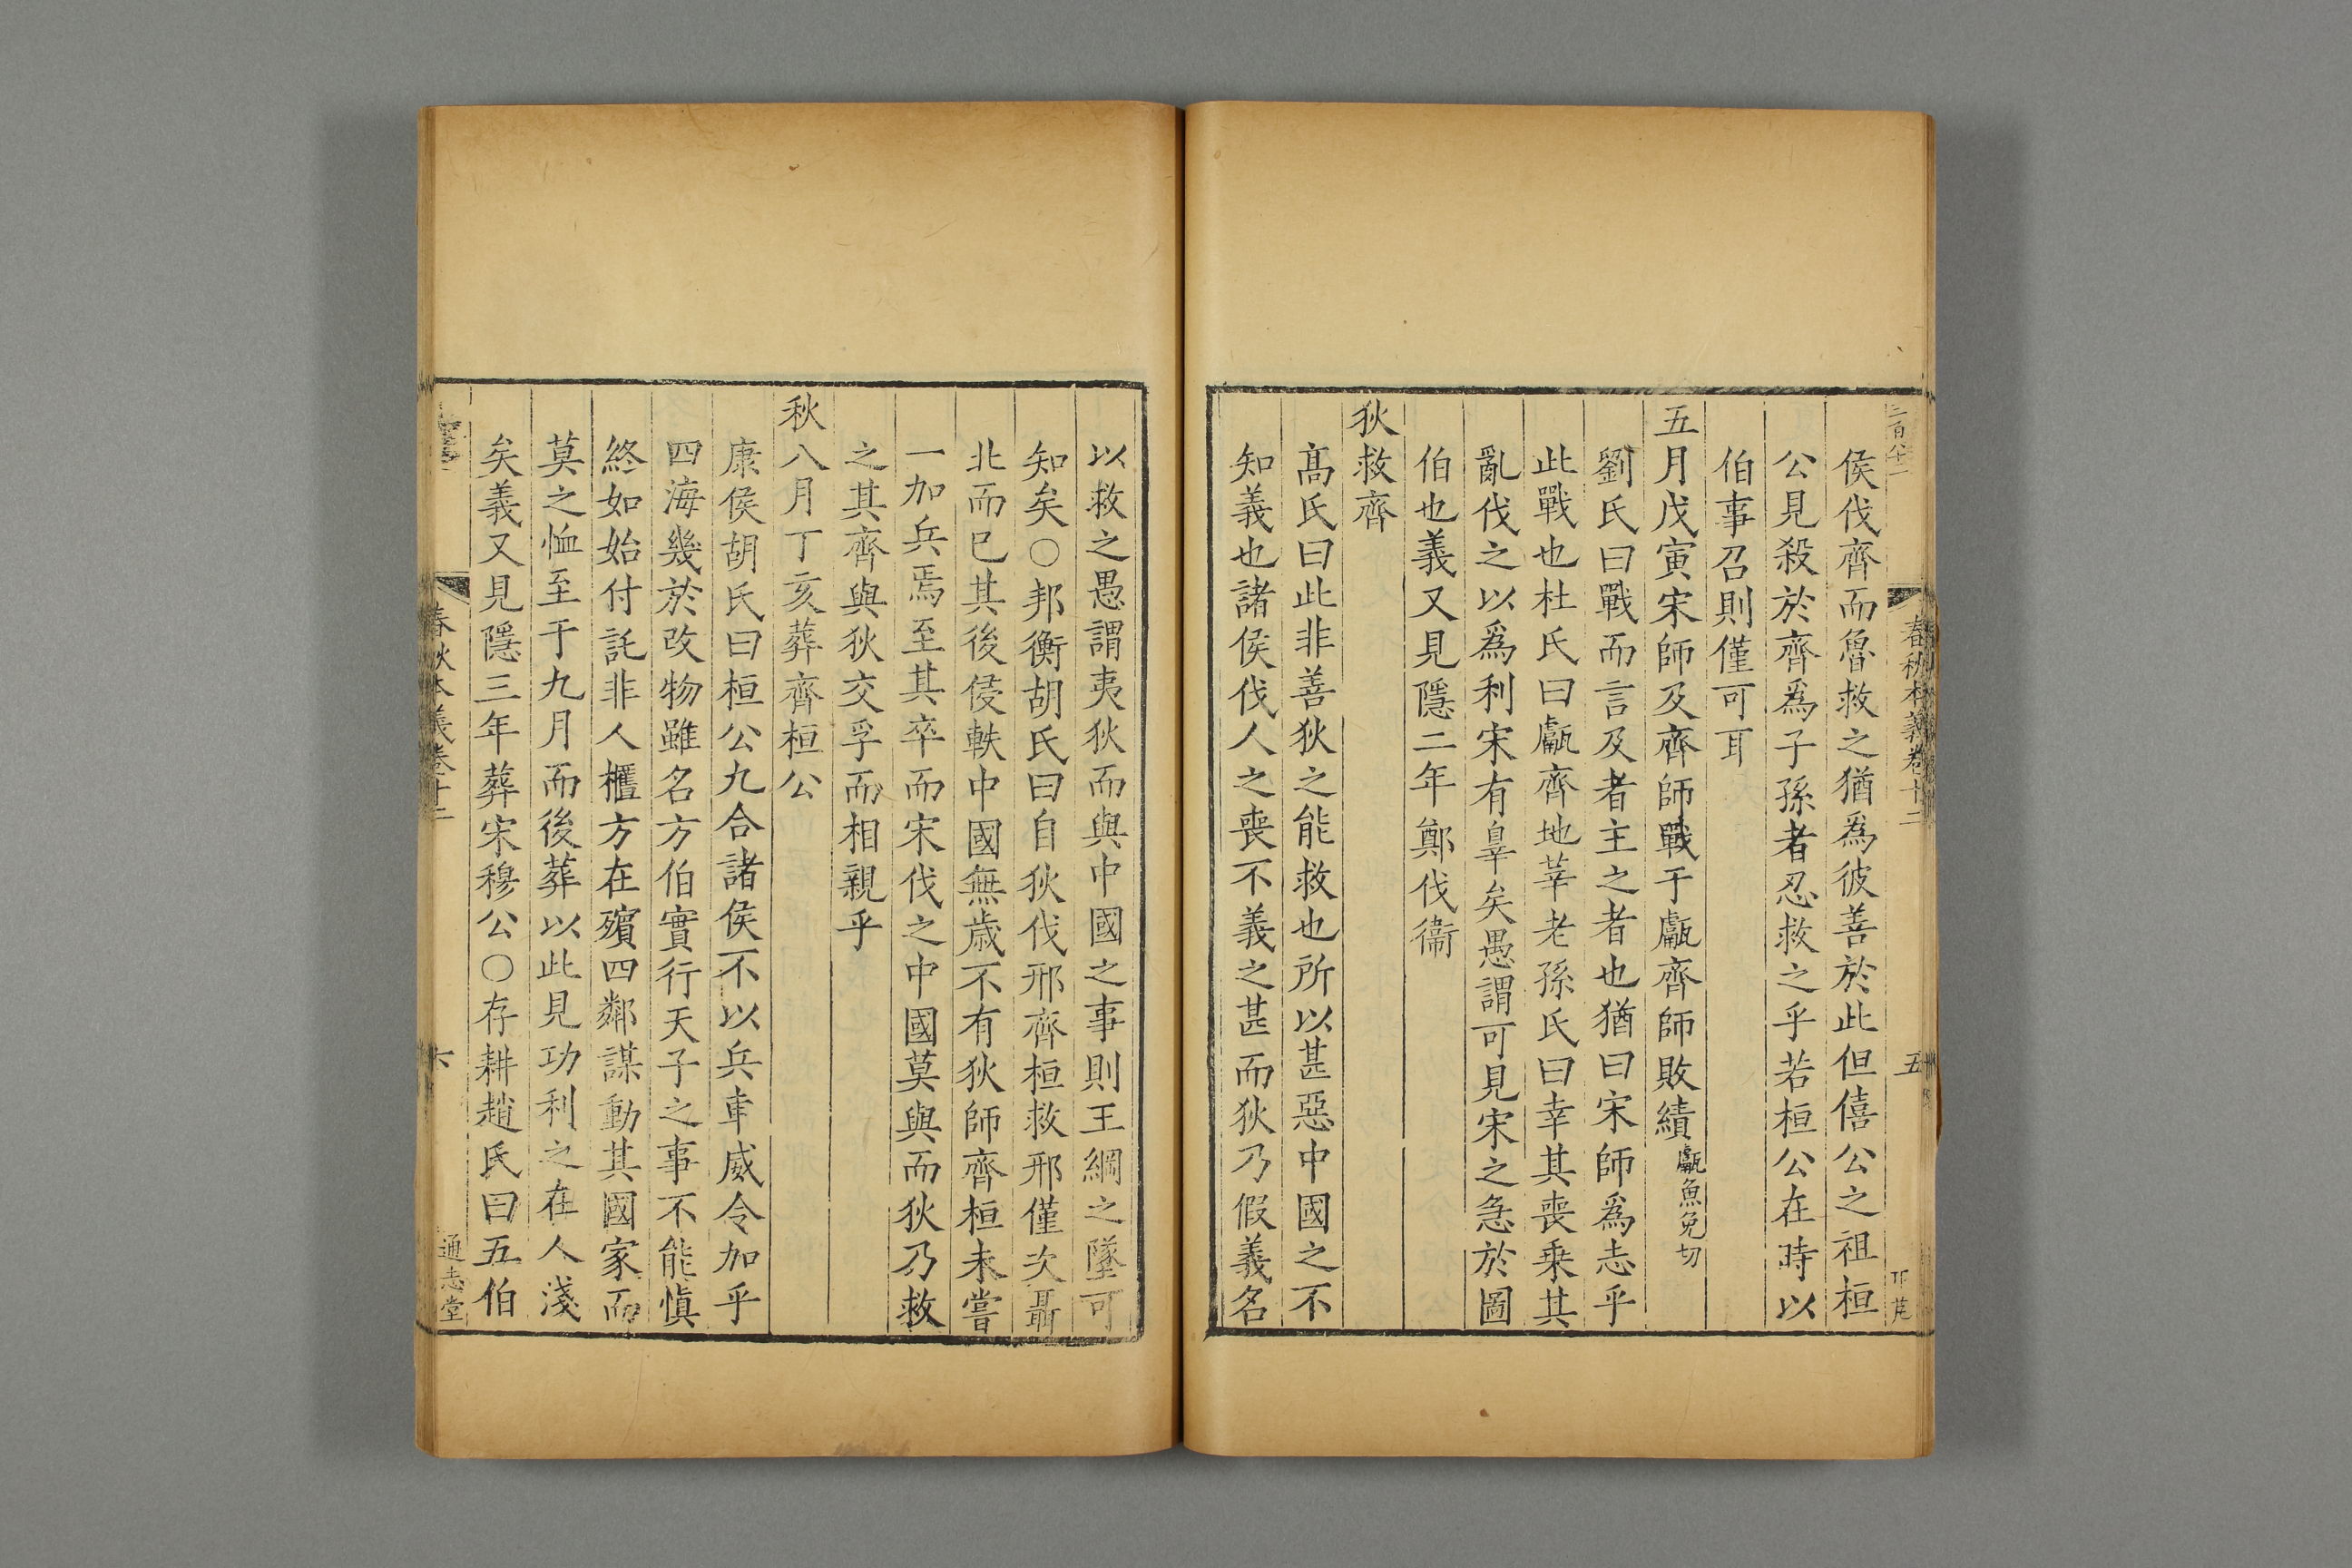 春秋本義卷十二
五
侯伐齊而魯救之猶爲彼善於此但僖公之祖桓
公見殺於齊爲子孫者忍救之乎若桓公在時以
伯事召則僅可耳
五月戊寅宋師及齊師戰于甗齊師敗績甗魚免切
劉氏曰戰而言及者主之者也猶曰宋師爲志乎
此戰也杜氏曰甗齊地莘老孫氏曰幸其喪乗其
亂伐之以爲利宋有辠矣愚謂可見宋之急於圖
伯也義又見隱二年鄭伐衞
狄救齊
髙氏曰此非善狄之能救也所以甚惡中國之不
知義也諸侯伐人之喪不義之甚而狄乃假義名
以救之愚謂夷狄而與中國之事則王綱之墜可
知矣○邦衡胡氏曰自狄伐邢齊桓救邢僅次聶
北而已其後侵軼中國無歳不有狄師齊桓未嘗
一加兵焉至其卒而宋伐之中國莫與而狄乃救
之其齊與狄交孚而相親乎
秋八月丁亥葬齊桓公
康侯胡氏曰桓公九合諸侯不以兵車威令加乎
四海幾於改物雖名方伯實行天子之事不能慎
終如始付託非人櫃方在殯四鄰謀動其國家而
莫之恤至于九月而後葬以此見功利之在人淺
矣義又見隱三年葬宋穆公○存耕趙氏曰五伯
春秋本義卷十二
六
通志堂